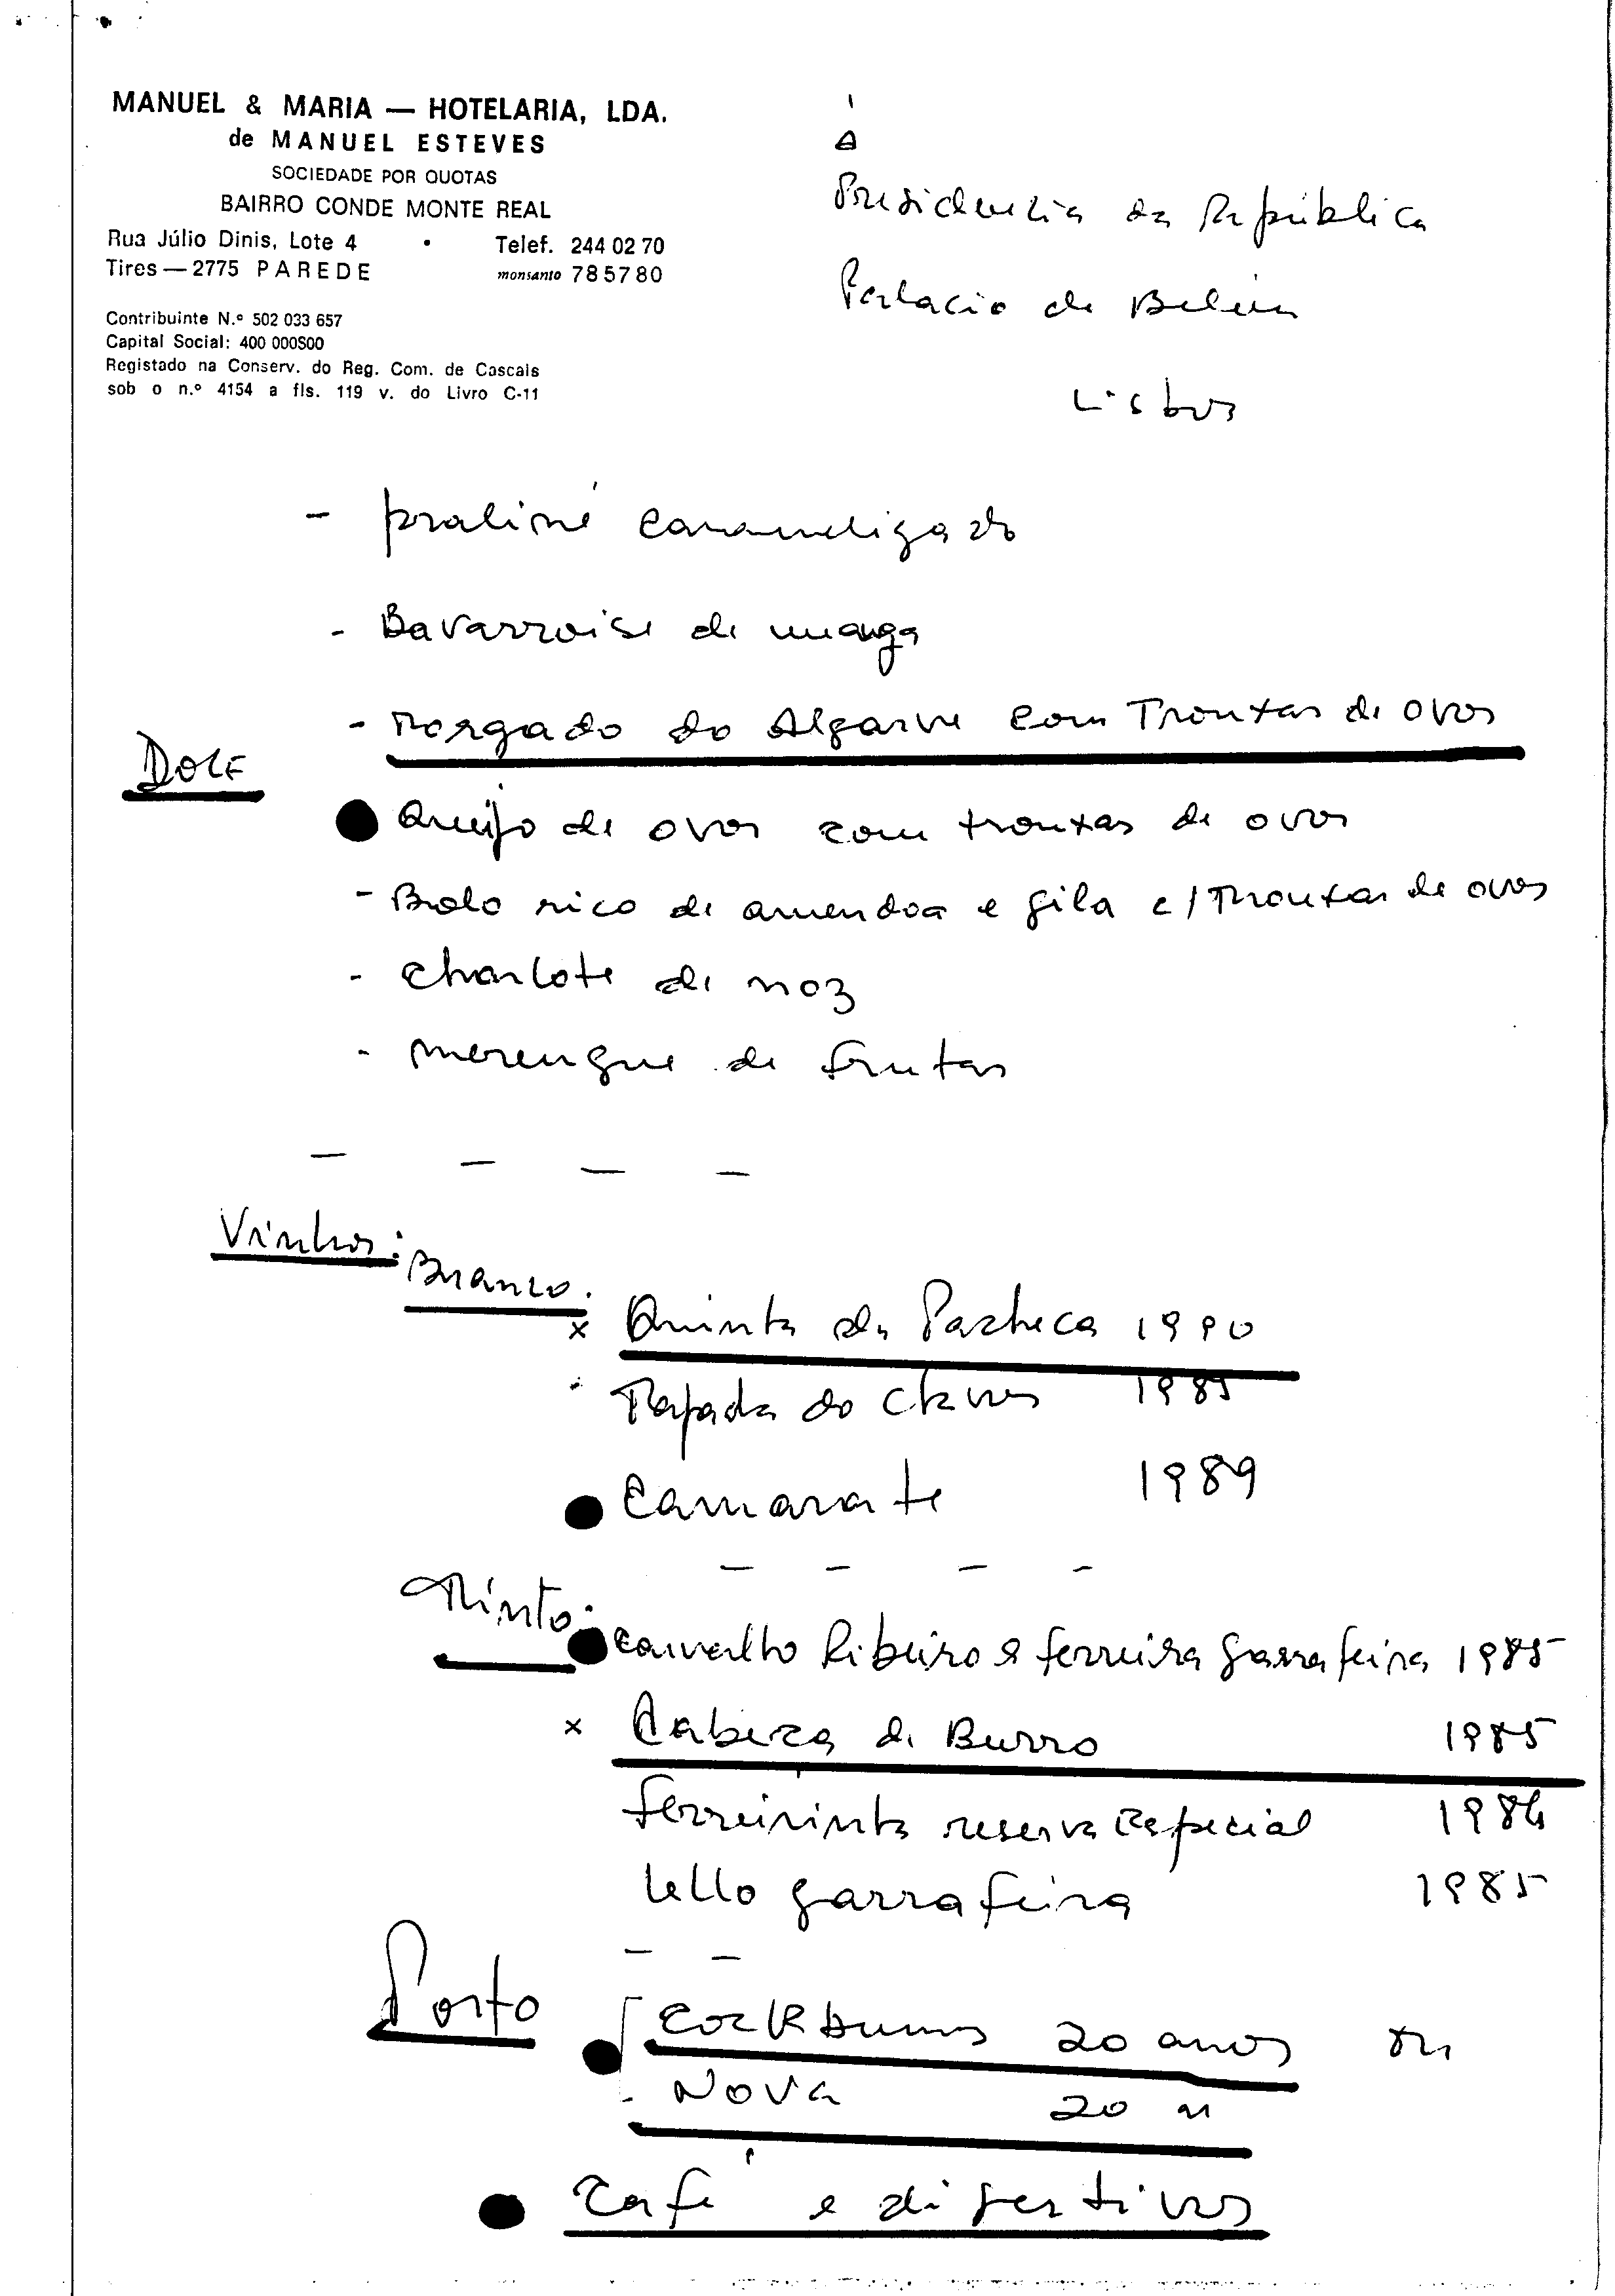 MANUEL & MARIA — HOTELARIA, LDA.
de MANUEL ESTEVES
SOCIEDADE POR QUOTAS
BAIRRO CONDE MONTE REAL
Rua Júlio Dinis, Lote 4 • Telef. 244 02 70
Tires — 2775 PAREDE monsanto 78 57 80
Contribuinte N.º 502 033 657
Capital Social: 400 000$00
Registado na Conserv. do Reg. Com. de Cascais
sob o n.º 4154 a fls. 119 v. do Livro C-11
À
Presidencia da República
Palacio de Belém
Lisboa
- praliné caramelizado
- Bavarroise de manga
- Morgado do Algarve com Trouxas de ovos
Doce
Queijo de ovos com trouxas de ovos
- Bolo rico de amendoa e gila c/ Trouxas de ovos
- Charlote de noz
- merengue de frutas
— — — —
Vinhos:
Branco.
x Quinta da Pacheca 1990
Tapada do Chaves 1989
Camarate 1989
— — — —
Tinto:
Carvalho Ribeiro & Ferreira garrafeira 1985
x Cabeça de Burro 1985
Ferreirinha reserva Especial 1984
Lello garrafeira 1985
— —
Porto
Cockburns 20 anos ou
Nova 20 "
Café e digestivos